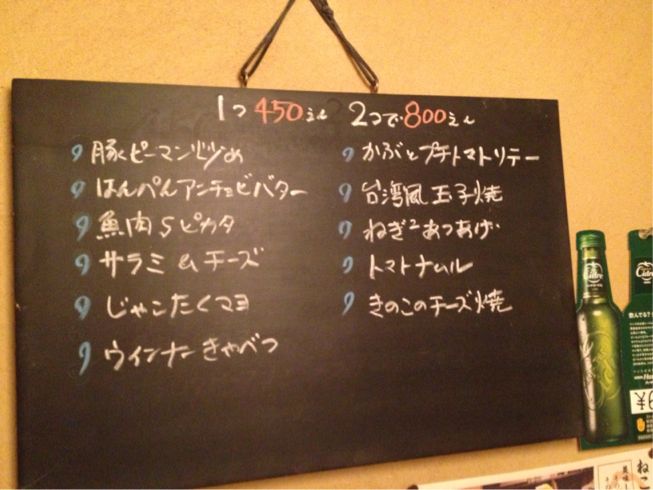 1つ450えん 2つで800えん
豚とピーマン炒め
はんぺんアンチョビバター
魚肉Sピカタ
サラミ&チーズ
じゃこたくマヨ
ウインナーきゃべつ
かぶとプチトマトソテー
台湾風玉子焼
ねぎ²あつあげ
トマトナムル
きのこのチーズ焼
Cidre
Cidre